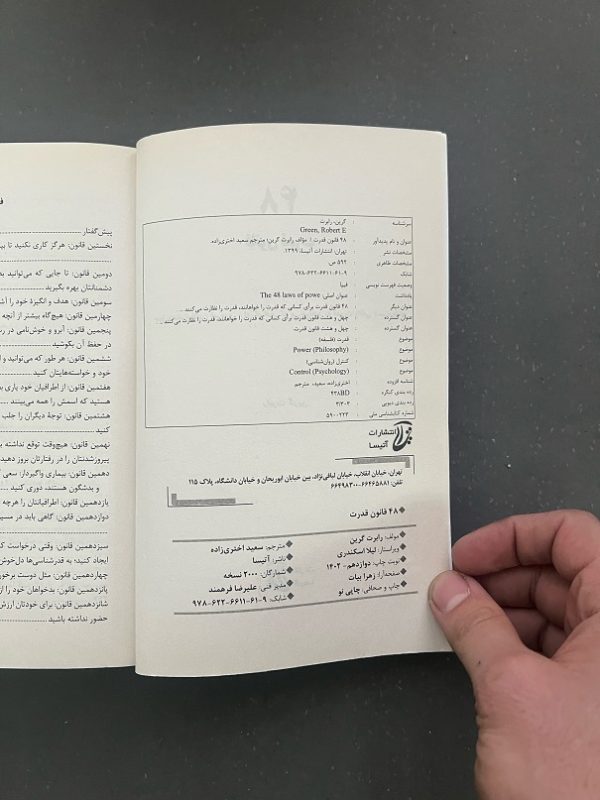 ۴۸
سرشناسه : گرین، رابرت
Green, Robert E
عنوان و نام پدیدآور : ۴۸ قانون قدرت / مؤلف رابرت گرین؛ مترجم سعید اختری‌زاده.
مشخصات نشر : تهران، انتشارات آتیسا، ۱۳۹۹.
مشخصات ظاهری : ۵۹۲ ص
شابک : ۹۷۸-۶۲۲-۶۶۱۱-۶۱-۹
وضعیت فهرست نویسی : فیپا
یادداشت : عنوان اصلی: The 48 laws of powe
عنوان دیگر : ۴۸ قانون قدرت برای کسانی که قدرت را خواهانند، قدرت را نظارت می‌کنند ...
عنوان گسترده : چهل و هشت قانون قدرت برای کسانی که قدرت را خواهانند، قدرت را نظارت می‌کنند ...
عنوان گسترده : چهل و هشت قانون قدرت
موضوع : قدرت (فلسفه)
موضوع : Power (Philosophy)
موضوع : کنترل (روان‌شناسی)
موضوع : Control (Psychology)
شناسه افزوده : اختری‌زاده، سعید، مترجم
رده بندی کنگره : ۴۳۸BD
رده بندی دیویی : ۳/۳۰۳
شماره کتابشناسی ملی : ۵۹۰۰۲۲۳
انتشارات
آتیسا
تهران، خیابان انقلاب، خیابان لبافی‌نژاد، بین خیابان ابوریحان و خیابان دانشگاه، پلاک ۱۱۵
تلفن: ۶۶۴۶۵۸۸۱-۶۶۴۹۸۳۰۰
۴۸ قانون قدرت
مؤلف: رابرت گرین
مترجم: سعید اختری‌زاده
ویراستار: لیلا اسکندری
ناشر: آتیسا
نوبت چاپ: دوازدهم-۱۴۰۳
شمارگان: ۲۰۰۰ نسخه
صفحه‌آرا: زهرا بیات
مدیر فنی: علیرضا فرهمند
چاپ و صحافی: چاپی نو
شابک: ۹-۶۱-۶۶۱۱-۶۲۲-۹۷۸
پیش‌گفتار
نخستین قانون: هرگز کاری نکنید تا
دومین قانون: تا جایی که می‌توانید به
دشمنانتان بهره بگیرید
سومین قانون: هدف و انگیزهٔ خود را
چهارمین قانون: هیچ‌گاه بیشتر از آنچه
پنجمین قانون: آبرو و خوش‌نامی در
در حفظ آن بکوشید
ششمین قانون: هر طور که می‌توانید و
خود و خواسته‌هایتان کنید
هفتمین قانون: از اطرافیان خود یاری
هستید که اسمش را همه می‌بینند
هشتمین قانون: توجهٔ دیگران را جلب
کنید
نهمین قانون: هیچ‌وقت توقع نداشته
پیروزشدنتان را در رفتارتان بروز دهید
دهمین قانون: بیماری واگیردار: سعی
و بدشگون هستند، دوری کنید
یازدهمین قانون: اطرافیانتان را هرچه
دوازدهمین قانون: گاهی باید در مسیر
سیزدهمین قانون: وقتی درخواست
ایجاد کنید؛ به قدرشناسی‌ها دل‌خوش
چهاردهمین قانون: مثل دوست
پانزدهمین قانون: بدخواهان خود را از
شانزدهمین قانون: برای خودتان ارزش
حضور نداشته باشید